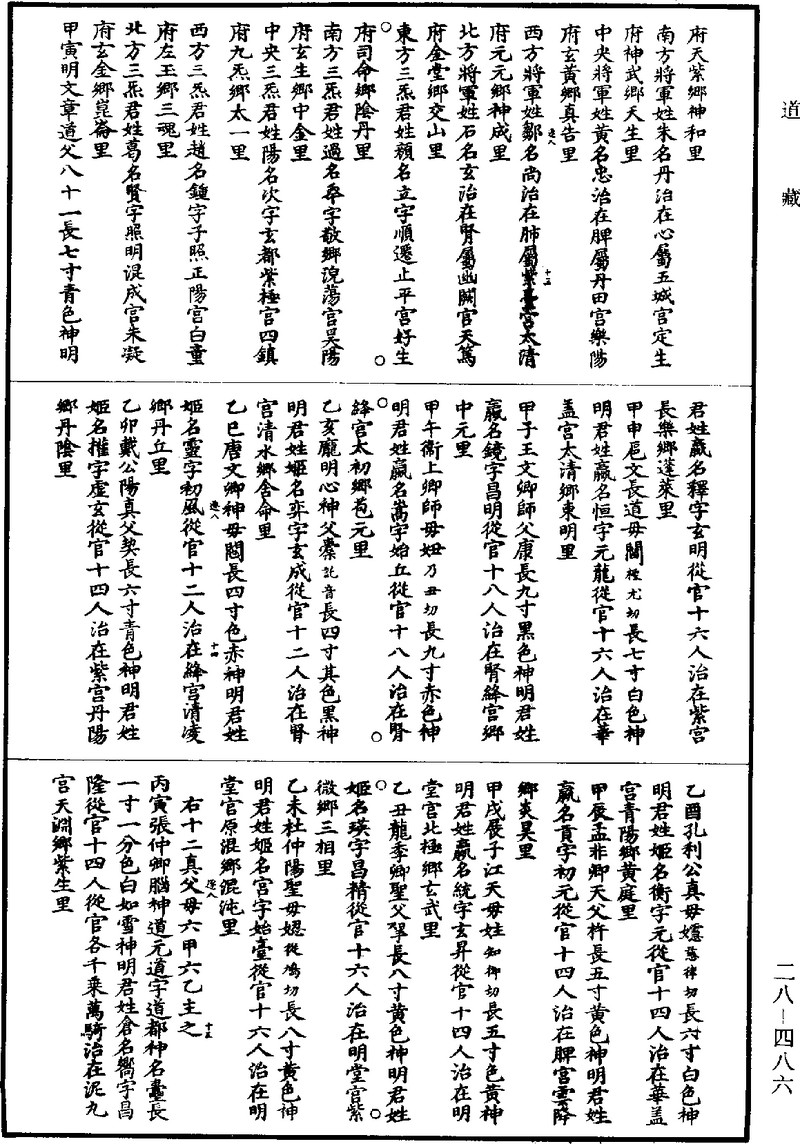 道藏
二八—四八六
府天紫鄉神和里
南方將軍姓朱名丹治在心屬五城宮定生
府神武鄉天生里
中央將軍姓黃名忠治在脾屬丹田宮樂陽
府玄黃鄉真吉里
西方將軍姓鄒名尚治在肺屬紫臺宮太清
府元元鄉神成里
北方將軍姓石名玄治在腎屬幽闕宮天篤
府金堂鄉交山里
東方三炁君姓顏名立字順遷止平宮好生
府司命鄉陰丹里
南方三炁君姓過名奉字敬鄉滉蕩宮昊陽
府玄生鄉中金里
中央三炁君姓陽名次字玄都紫極宮四鎮
府九炁鄉太一里
西方三炁君姓趙名鍾字子照正陽宮白童
府左玉鄉三魂里
北方三炁君姓葛名賢字照明混成宮朱凝
府玄金鄉崑崙里
甲寅明文章道父八十一長七寸青色神明
君姓嬴名釋字玄明從官十六人治在紫宮
長樂鄉蓬萊里
甲申扈文長道母闔極尤切長七寸白色神
明君姓嬴名恒字元龍從官十六人治在華
蓋宮太清鄉東明里
甲子王文卿師父康長九寸黑色神明君姓
嬴名鏡字昌明從官十八人治在腎絳宮鄉
中元里
甲午衛上卿師母妞乃丑切長九寸赤色神
明君姓嬴名嵩字始丘從官十八人治在腎
絳宮太初鄉苞元里
乙亥龐明心神父橐託音長四寸其色黑神
明君姓姬名弈字玄成從官十二人治在腎
宮清水鄉舍命里
乙巳唐文卿神母閻長四寸色赤神明君姓
姬名靈字初風從官十二人治在絳宮清凌
鄉丹丘里
乙卯戴公陽真父契長六寸青色神明君姓
姬名搉字虛玄從官十四人治在紫宮丹陽
鄉丹陰里
乙酉孔利公真母長六寸白色神
明君姓姬名衡字元從官十四人治在華蓋
宮青陽鄉黃庭里
甲辰孟非卿天父杵長五寸黃色神明君姓
嬴名貢字初元從官十四人治在脾宮雲降
鄉炎昊里
甲戌展子江天母妵知御切長五寸色黃神
明君姓嬴名統字玄昇從官十四人治在明
堂宮北極鄉玄武里
乙丑龍季卿聖父長八寸黃色神明君姓
姬名瑛字昌精從官十六人治在明堂宮紫
微鄉三相里
乙未杜仲陽聖母長八寸黃色神
明君姓姬名宮字始臺從官十六人治在明
堂宮原混鄉混沌里
右十二真父母六甲六乙主之
丙寅張仲卿腦神道元道字道都神名長
一寸一分色白如雪神明君姓倉名嚮字昌
隆從官十四人從官各千乘萬騎治在泥丸
宮天淵鄉紫生里